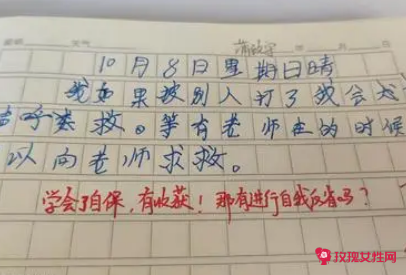 年 月 日
10月8日星期日晴
我如果被别人打了我会大
声呼喊救。等有老师在的时候
以向老师求救。
学会了自保,有收获!那有进行自我反省吗?
玫瑰女性网